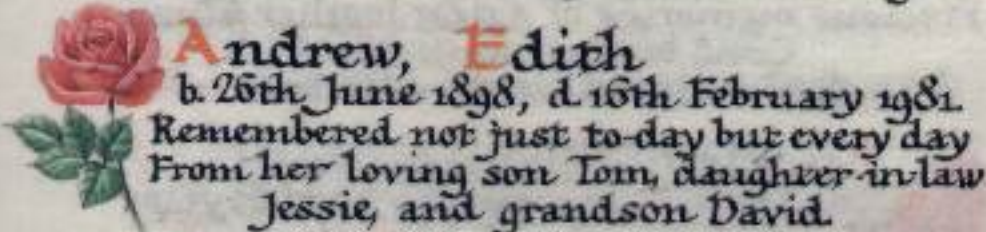 Andrew, Edith
b. 26th June 1898, d. 16th February 1981.
Remembered not just to-day but every day
From her loving son Tom, daughter-in-law
Jessie, and grandson David.